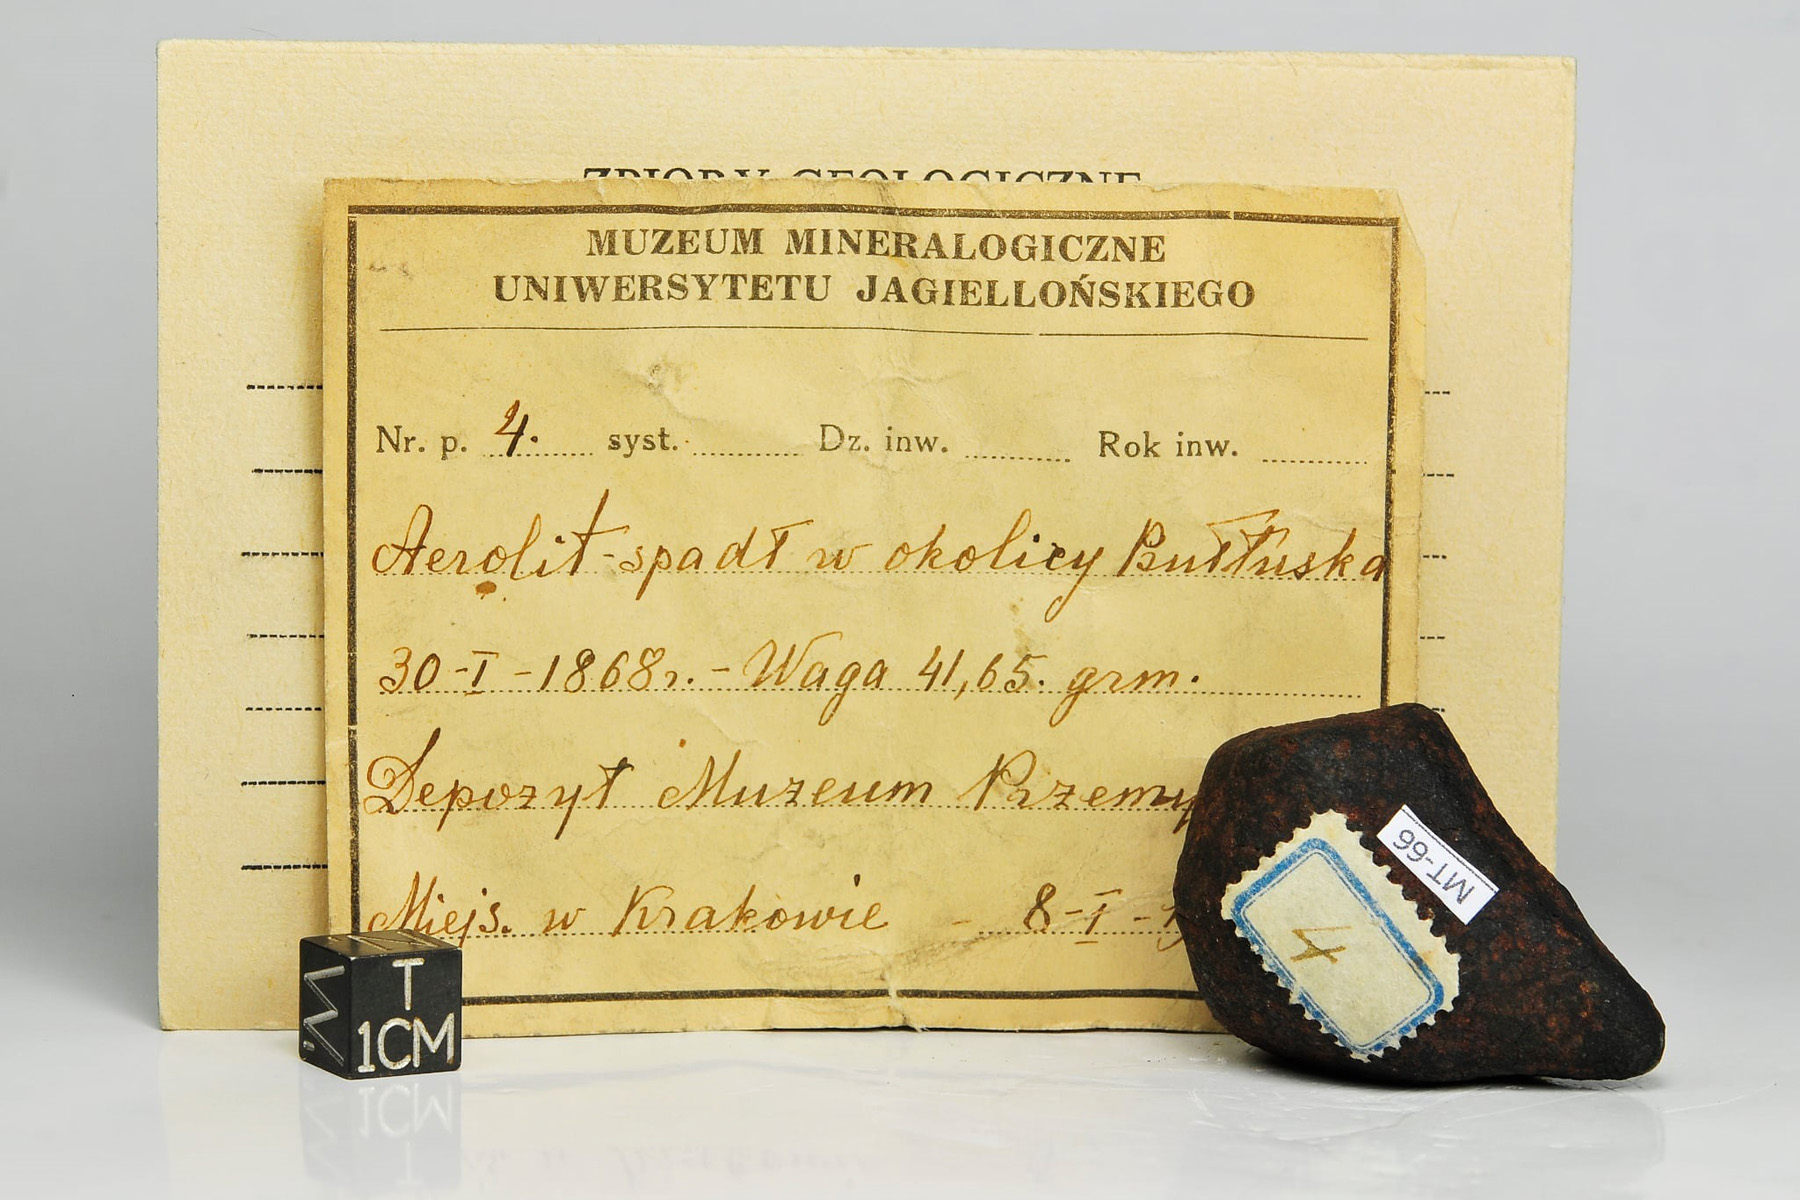 ZBIORY GEOLOGICZNE
MUZEUM MINERALOGICZNE
UNIWERSYTETU JAGIELLOŃSKIEGO
Nr. p. 4. syst. Dz. inw. Rok inw.
Aerolit-spadł w okolicy Pułtuska
30-I-1868r. - Waga 41,65. grm.
Depozyt Muzeum Przemy
Miejs. w Krakowie - 8-I-19
MT-66
4
T
1CM